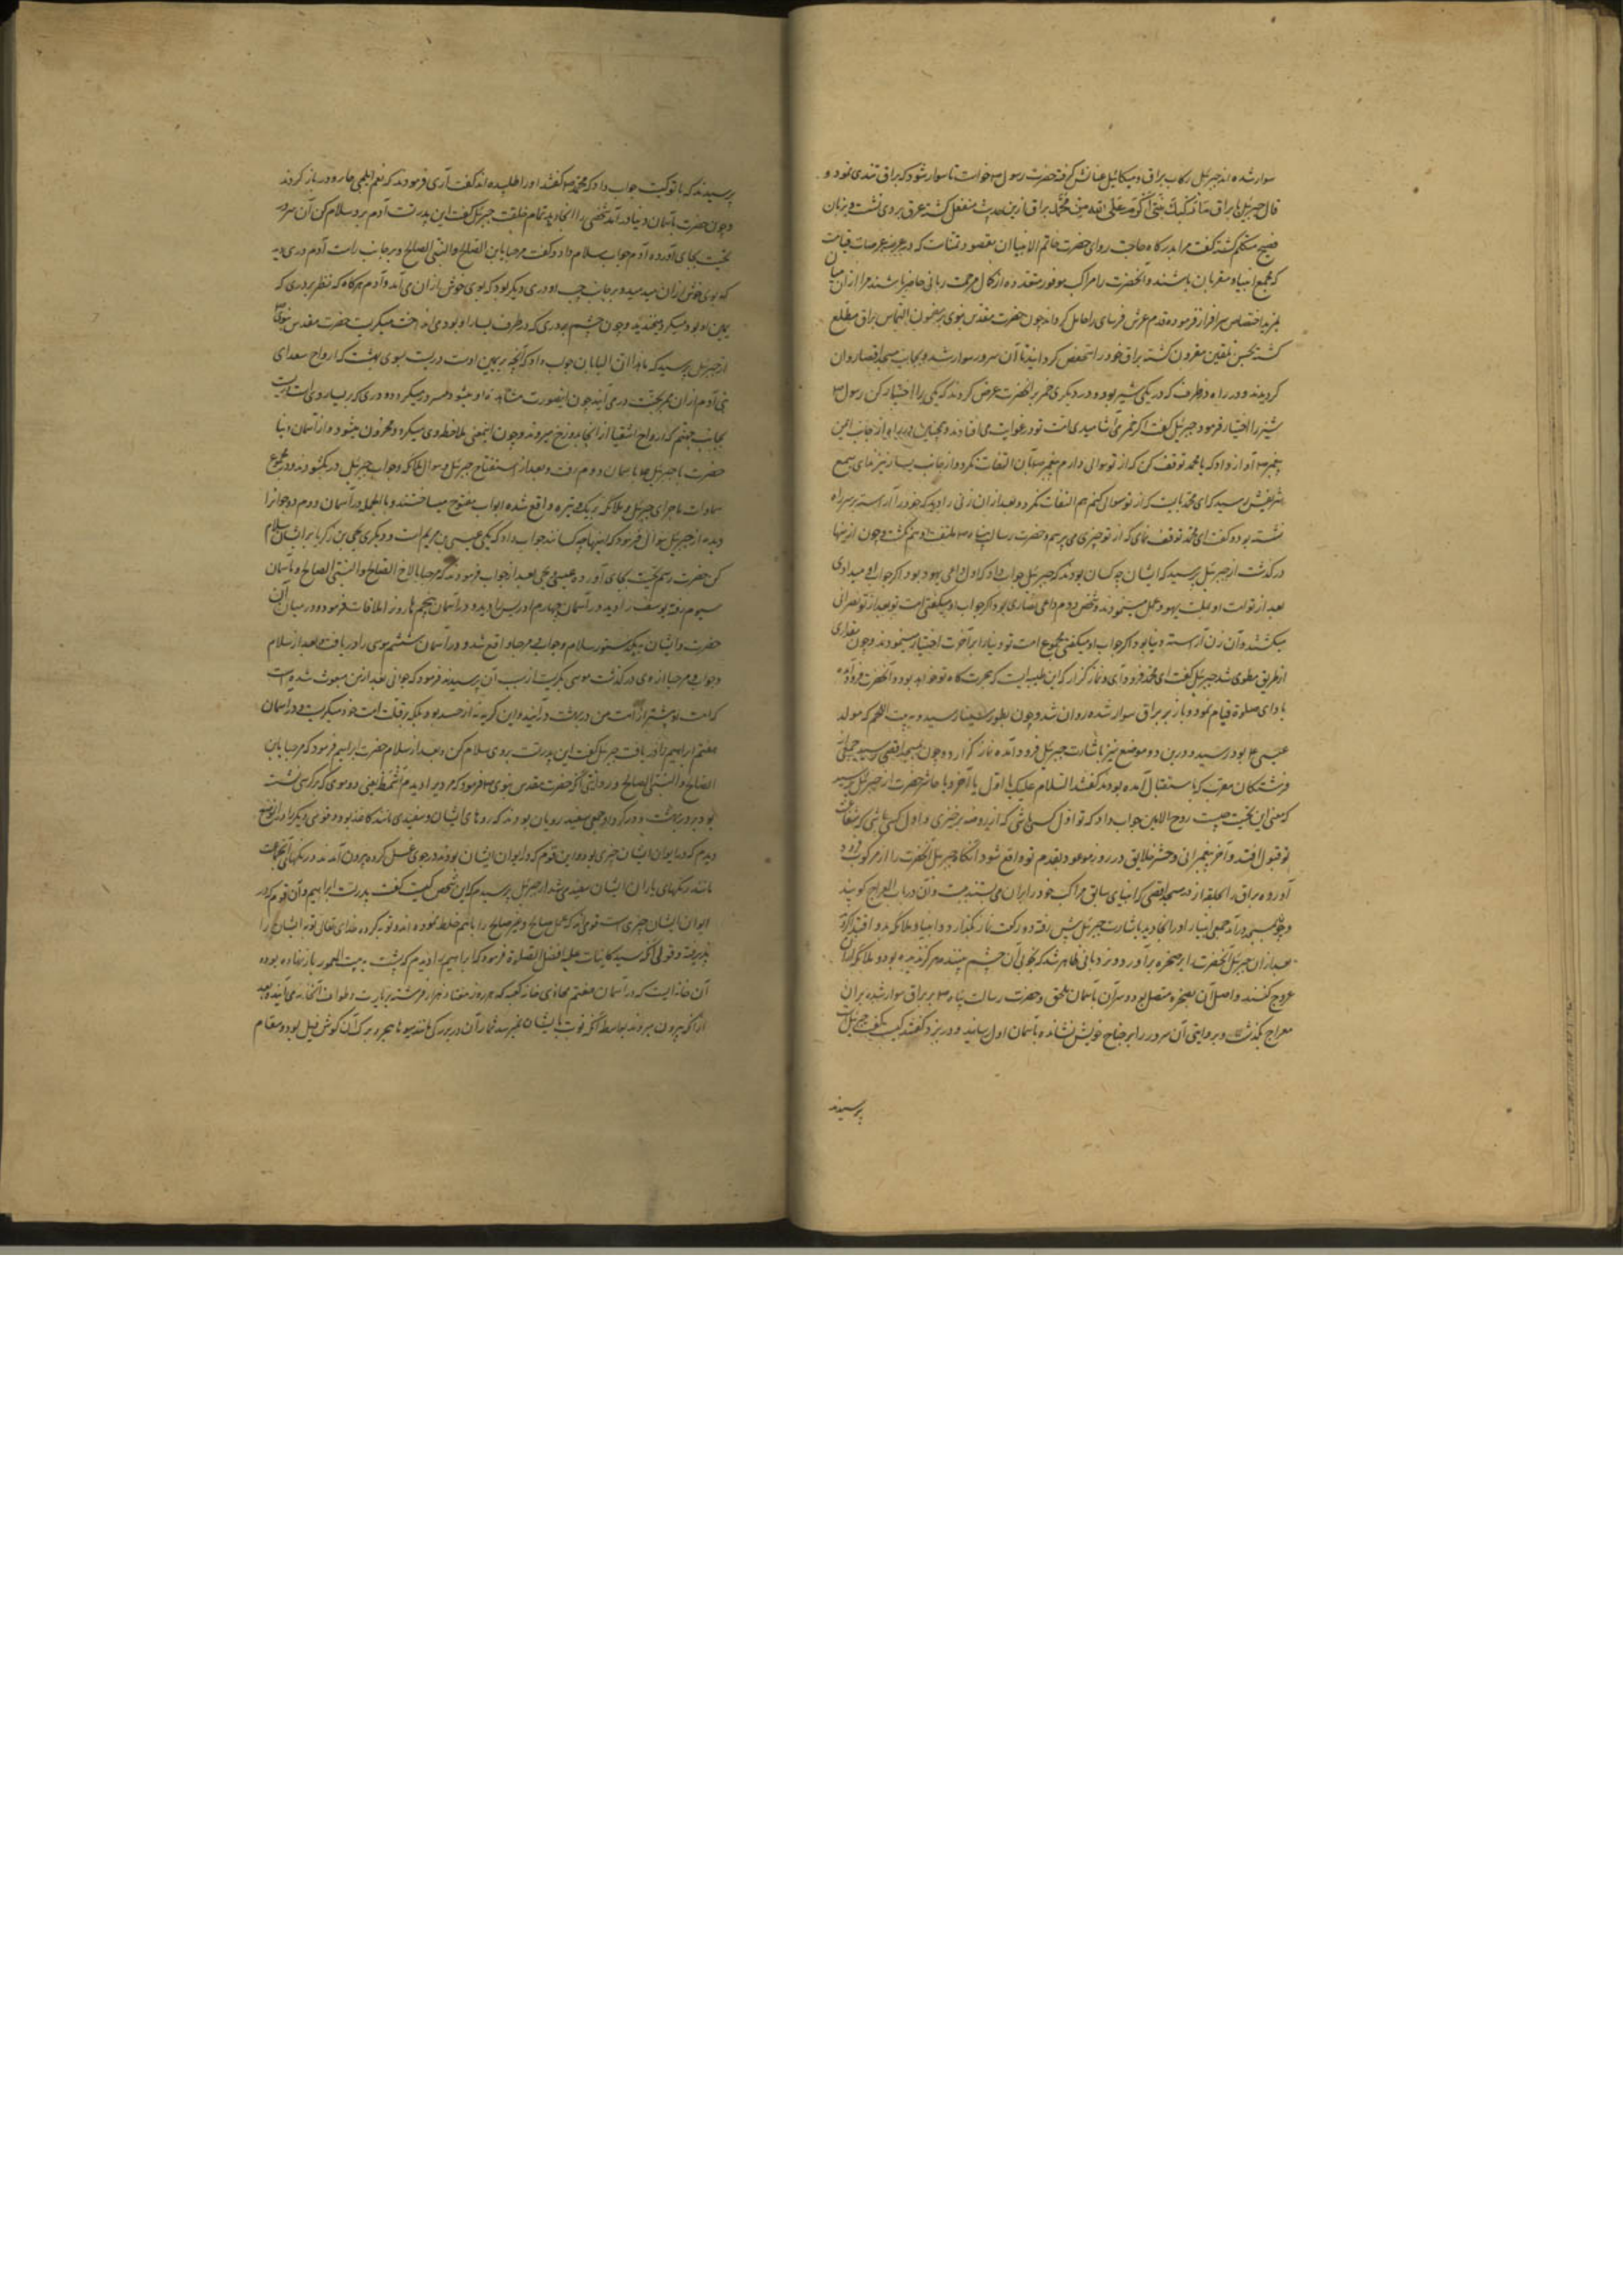 سوار شده اند جبرئیل رکاب براق و میکائیل عنانش گرفته حضرت رسول ص خواست تا سوار شود که براق تندی نمود و
قال جبرئیل یا براق ما رکبک نبی اکرم علی الله من محمد براق ازین حدیث منفعل گشته عرق بر وی نشست و بزبان
فصیح متکلم گشته گفت مرا بدرگاه حاجت روای حضرت خاتم الانبیا آن مقصود و تمناست که در عرصه عرصات قیامت
که مجمع انبیا و مقربان باشند و آنحضرت را مراکب موفور متعدده از کمال مرحمت ربانی حاضر باشند مرا از آن میان
بمزید اختصاص سرافراز فرموده قدم عرش فرسای را حامل گرداند چون حضرت مقدس نبوی بر مضمون التماس براق مطلع
گشته بحسن تلقین مقرون گشته براق خود را منخفض گردانید تا آن سرور سوار شد و بجانب مسجد اقصا روان
گردیدند و در راه دو ظرف که در یکی شیر بود و در دیگری خمر بر آنحضرت عرض کردند که یکی را اختیار کن رسول ص
شیر را اختیار فرمود جبرئیل گفت اگر خمر می آشامیدی امت تو در غوایت می افتادند و همچنین در راه از جانب ایمن
پیغمبر ص آواز داد که یا محمد توقف کن که از تو سوالی دارم پیغمبر ص بآن التفات نکرد و از جانب یسار نیز ندای بسمع
شریفش رسید که ای محمد بایست که از تو سوال کنم هم التفات نکرد و بعد از ان زنی را دید که خود را آراسته بر سر راه
نشسته بود و گفت ای محمد توقف نمای که از تو چیزی می پرسم و حضرت رسالت پناه ص ملتفت او هم نگشت و چون از ینها
درگذشت از جبرئیل پرسید که ایشان چه کسان بودند که جبرئیل جواب داد که اول داعی یهود بود اگر جواب او میدادی
بعد از تو امت او بملت یهود عمل مینمودند و شخص دوم داعی نصاری بود اگر جواب او میگفتی امت تو بعد از تو نصرانی
میگشتند و آن زن آراسته دنیا بود اگر جواب او میگفتی مجموع امت تو دنیا را بر آخرت اختیار مینمودند و چون مقداری
از طریق مطوی شد جبرئیل گفت ای محمد فرود آی و نماز گزار که این طیبه است که هجرت گاه تو خواهد بود و آنحضرت فرود آمده
بادای صلوة قیام نمود و باز بر براق سوار شده روان شد و چون بطور سینا رسید و به بیت اللحم که مولد
عیسی ع بود رسید و درین دو موضع نیز باشارت جبرئیل فرود آمده نماز گزارد و چون بمسجد اقصی رسید جمعی از
فرشتگان مقرب که باستقبال آمده بودند گفتند السلام علیک یا اول یا آخر و یا حاشر حضرت از جبرئیل پرسید
که معنی این تحیت چیست روح الامین جواب داد که تو اول کسی باشی که از روضه برخیزی و اول کسی باشی که شفاعت
تو قبول افتد و آخر پیغمبرانی و حشر خلایق در روز موعود بقدم تو واقع شود آنگاه جبرئیل آنحضرت را از مرکوب فرود
آورده براق را بحلقه از در مسجد اقصی که انبیای سابق مراکب خود را بر آن می بستند بست و آن در باب المعراج گویند
و چون بمسجد درآمد جمعی انبیا را در انجا دید باشارت جبرئیل پیش رفته دو رکعت نماز بگذارد و انبیا و ملائکه بدو اقتدا کردند
بعد از ان جبرئیل آنحضرت را بر صخره برآورد و نردبانی ظاهر شد که بخوبی آن چشم بیننده هرگز ندیده بود و ملائکه از ان
عروج کنند و اصل آن بصخره متصل بود و سر آن بآسمان ملحق و حضرت رسالت پناه ص بر براق سوار شده بر آن
معراج بگذشت و بروایتی آن سرور را بر جناح خویش نشانده بآسمان اول رسانید و در بزد گفتند کیست گفت جبرئیل است
پرسیدند
پرسیدند که با تو کیست جواب داد که محمد ص گفتند او را طلبیده اند گفت آری فرمودند که نعم المجی جا و در باز کردند
و چون حضرت بآسمان دنیا درآمد شخصی را آنجا دید تمام خلقت جبرئیل گفت این پدرت آدم برو سلام کن آن سرور
تحیت بجای آورده آدم جواب سلام داد و گفت مرحبا یا ابن الصالح و النبی الصالح و بر جانب راست آدم دری دید
که بوی خوش از ان میدمید و بر جانب چپ او دری دیگر بود که بوی خوش از ان می آمد و آدم هرگاه که نظر بر دری که
یمین او بود میکرد میخندید و چون چشم بر دری که در طرف یسار او بود می انداخت میگریست حضرت مقدس نبوی
از جبرئیل پرسید که ماهذا ان البابان جواب داد که آنچه بر یمین اوست دریست بسوی بهشت که ارواح سعدای
بنی آدم از ان ببهشت درمی آیند چون اینصورت مشاهده او میشود مسرور میگردد و دری که بر یسار وی است دریست
بجانب جهنم که ارواح اشقیا از آنجا بدوزخ میروند و چون اینمعنی ملاحظه وی میگردد محزون میشود و از آسمان دنیا
حضرت با جبرئیل ع بآسمان دوم رفت و بعد از استفتاح جبرئیل و سوال ملائکه و جواب جبرئیل در بگشودند و در مجموع
سماوات ماجرای جبرئیل و ملائکه بر یک وتیره واقع شده ابواب مفتوح میساختند و بالجمله در آسمان دوم دو جوان را
دیده از جبرئیل سوال فرمود که اینها چه کسانند جواب داد که یکی عیسی بن مریم است و دیگری یحیی بن زکریا بر ایشان سلام
کن حضرت رسم تحیت بجای آورده عیسی و یحیی بعد از جواب فرمودند که مرحبا بالاخ الصالح و النبی الصالح و بآسمان
سیوم رفته یوسف را دید و در آسمان چهارم ادریس را دید و در آسمان پنجم هارون را ملاقات فرموده و در میان آن
حضرت و ایشان بهمین دستور سلام و جواب و مرحبا واقع شد و در آسمان ششم موسی را دریافت و بعد از سلام
و جواب و مرحبا از وی درگذشت موسی بگریست از سبب آن پرسیدند فرمود که جوانی بعد از من مبعوث شده است
که امت او بیشتر از امت من در بهشت درآیند و این گریه نه از حسد بود بلکه بر قلت امت خود میگریست و در آسمان
هفتم ابراهیم را دریافت جبرئیل گفت این پدرتست بروی سلام کن و بعد از سلام حضرت ابراهیم فرمود که مرحبا یا ابن
الصالح و النبی الصالح و روایتی آنکه حضرت مقدس نبوی ص فرمود که مردی را دیدم اشمط یعنی دو موی که بر کرسی نشسته
بود بر در بهشت و در گرد او جمعی سفید رویان بودند که روهای ایشان و سفیدی مانند کاغذ بود و قومی دیگر را در آن موضع
دیدم که در الوان ایشان چیزی بود و این قوم که در الوان ایشان بود در جوی غسل کرده بیرون آمدند و رنگهای آنجماعت
مانند رنگهای یاران ایشان سفید شد از جبرئیل پرسیدم که این شخص کیست گفت پدرت ابراهیم و آن قوم که در
الوان ایشان چیزی است قومی اند که عمل صالح و غیر صالح را باهم خلط نموده اند و توبه کرده خدای تعالی توبه ایشان را
پذیرفته و قولی آنکه سید کاینات علیه افضل الصلوة فرمود که ابراهیم را دیدم که پشت به بیت المعمور باز نهاده بود و
آن خانه ایست که در آسمان هفتم محاذی خانه کعبه که هر روز هفتاد هزار فرشته بزیارت و طواف آنخانه می آیند و بعد
از آنکه بیرون میروند بواسطه آنکه نوبت بایشان نمیرسد شمار آن در بزرگی مانند سبوها هجر و برگ آن گوش فیل بود و مقام